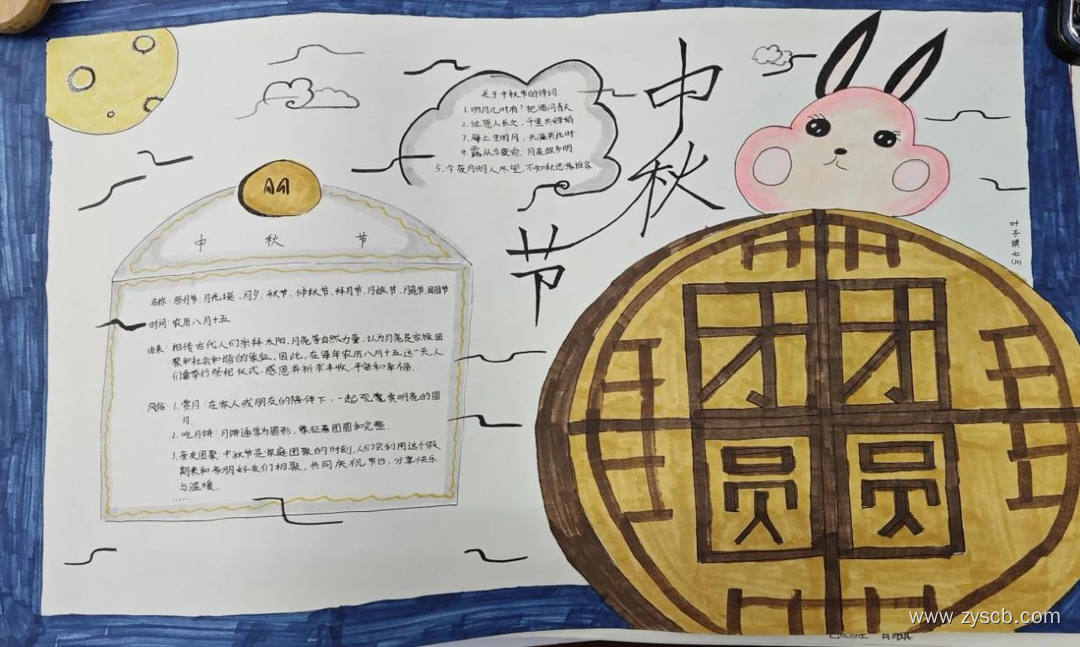 中秋节
关于中秋节的诗词
1.明月几时有?把酒问青天
2.但愿人长久,千里共婵娟
3.海上生明月,天涯共此时
4.露从今夜白,月是故乡明
5.今夜月明人尽望,不知秋思落谁家
中 秋 节
名称:祭月节、月光诞、月夕、秋节、仲秋节、拜月节、月娘节、月亮节、团圆节
时间:农历八月十五
由来:相传古代人们崇拜太阳、月亮等自然力量,认为月亮是家族团
聚和社会和谐的象征,因此,在每年农历八月十五这一天,人
们会举行祭祀仪式,感恩并祈求丰收、平安和幸福。
风俗 1.赏月:在家人或朋友的陪伴下,一起观赏明亮的圆
月.
2.吃月饼:月饼通常为圆形,象征着团圆和完整.
3.亲友团聚:中秋节是家庭团聚的时刻,人们会利用这个假
期来和亲朋好友们相聚,共同庆祝节日,分享快乐
与温暖.
......
团团
圆圆
www.zyscb.com